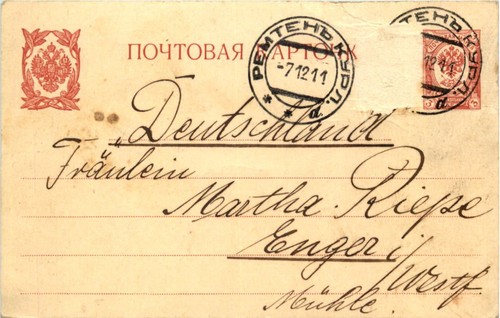 ПОЧТОВАЯ КАРТОЧКА
РЕМТЕНЪ КУРЛ.
-7 12 11
* * а.
ТЕНЪ КУРЛ.
12 11
а.
"Deutschland
Fräulein
Martha Riepe
Enger i/Westf
Mühle.